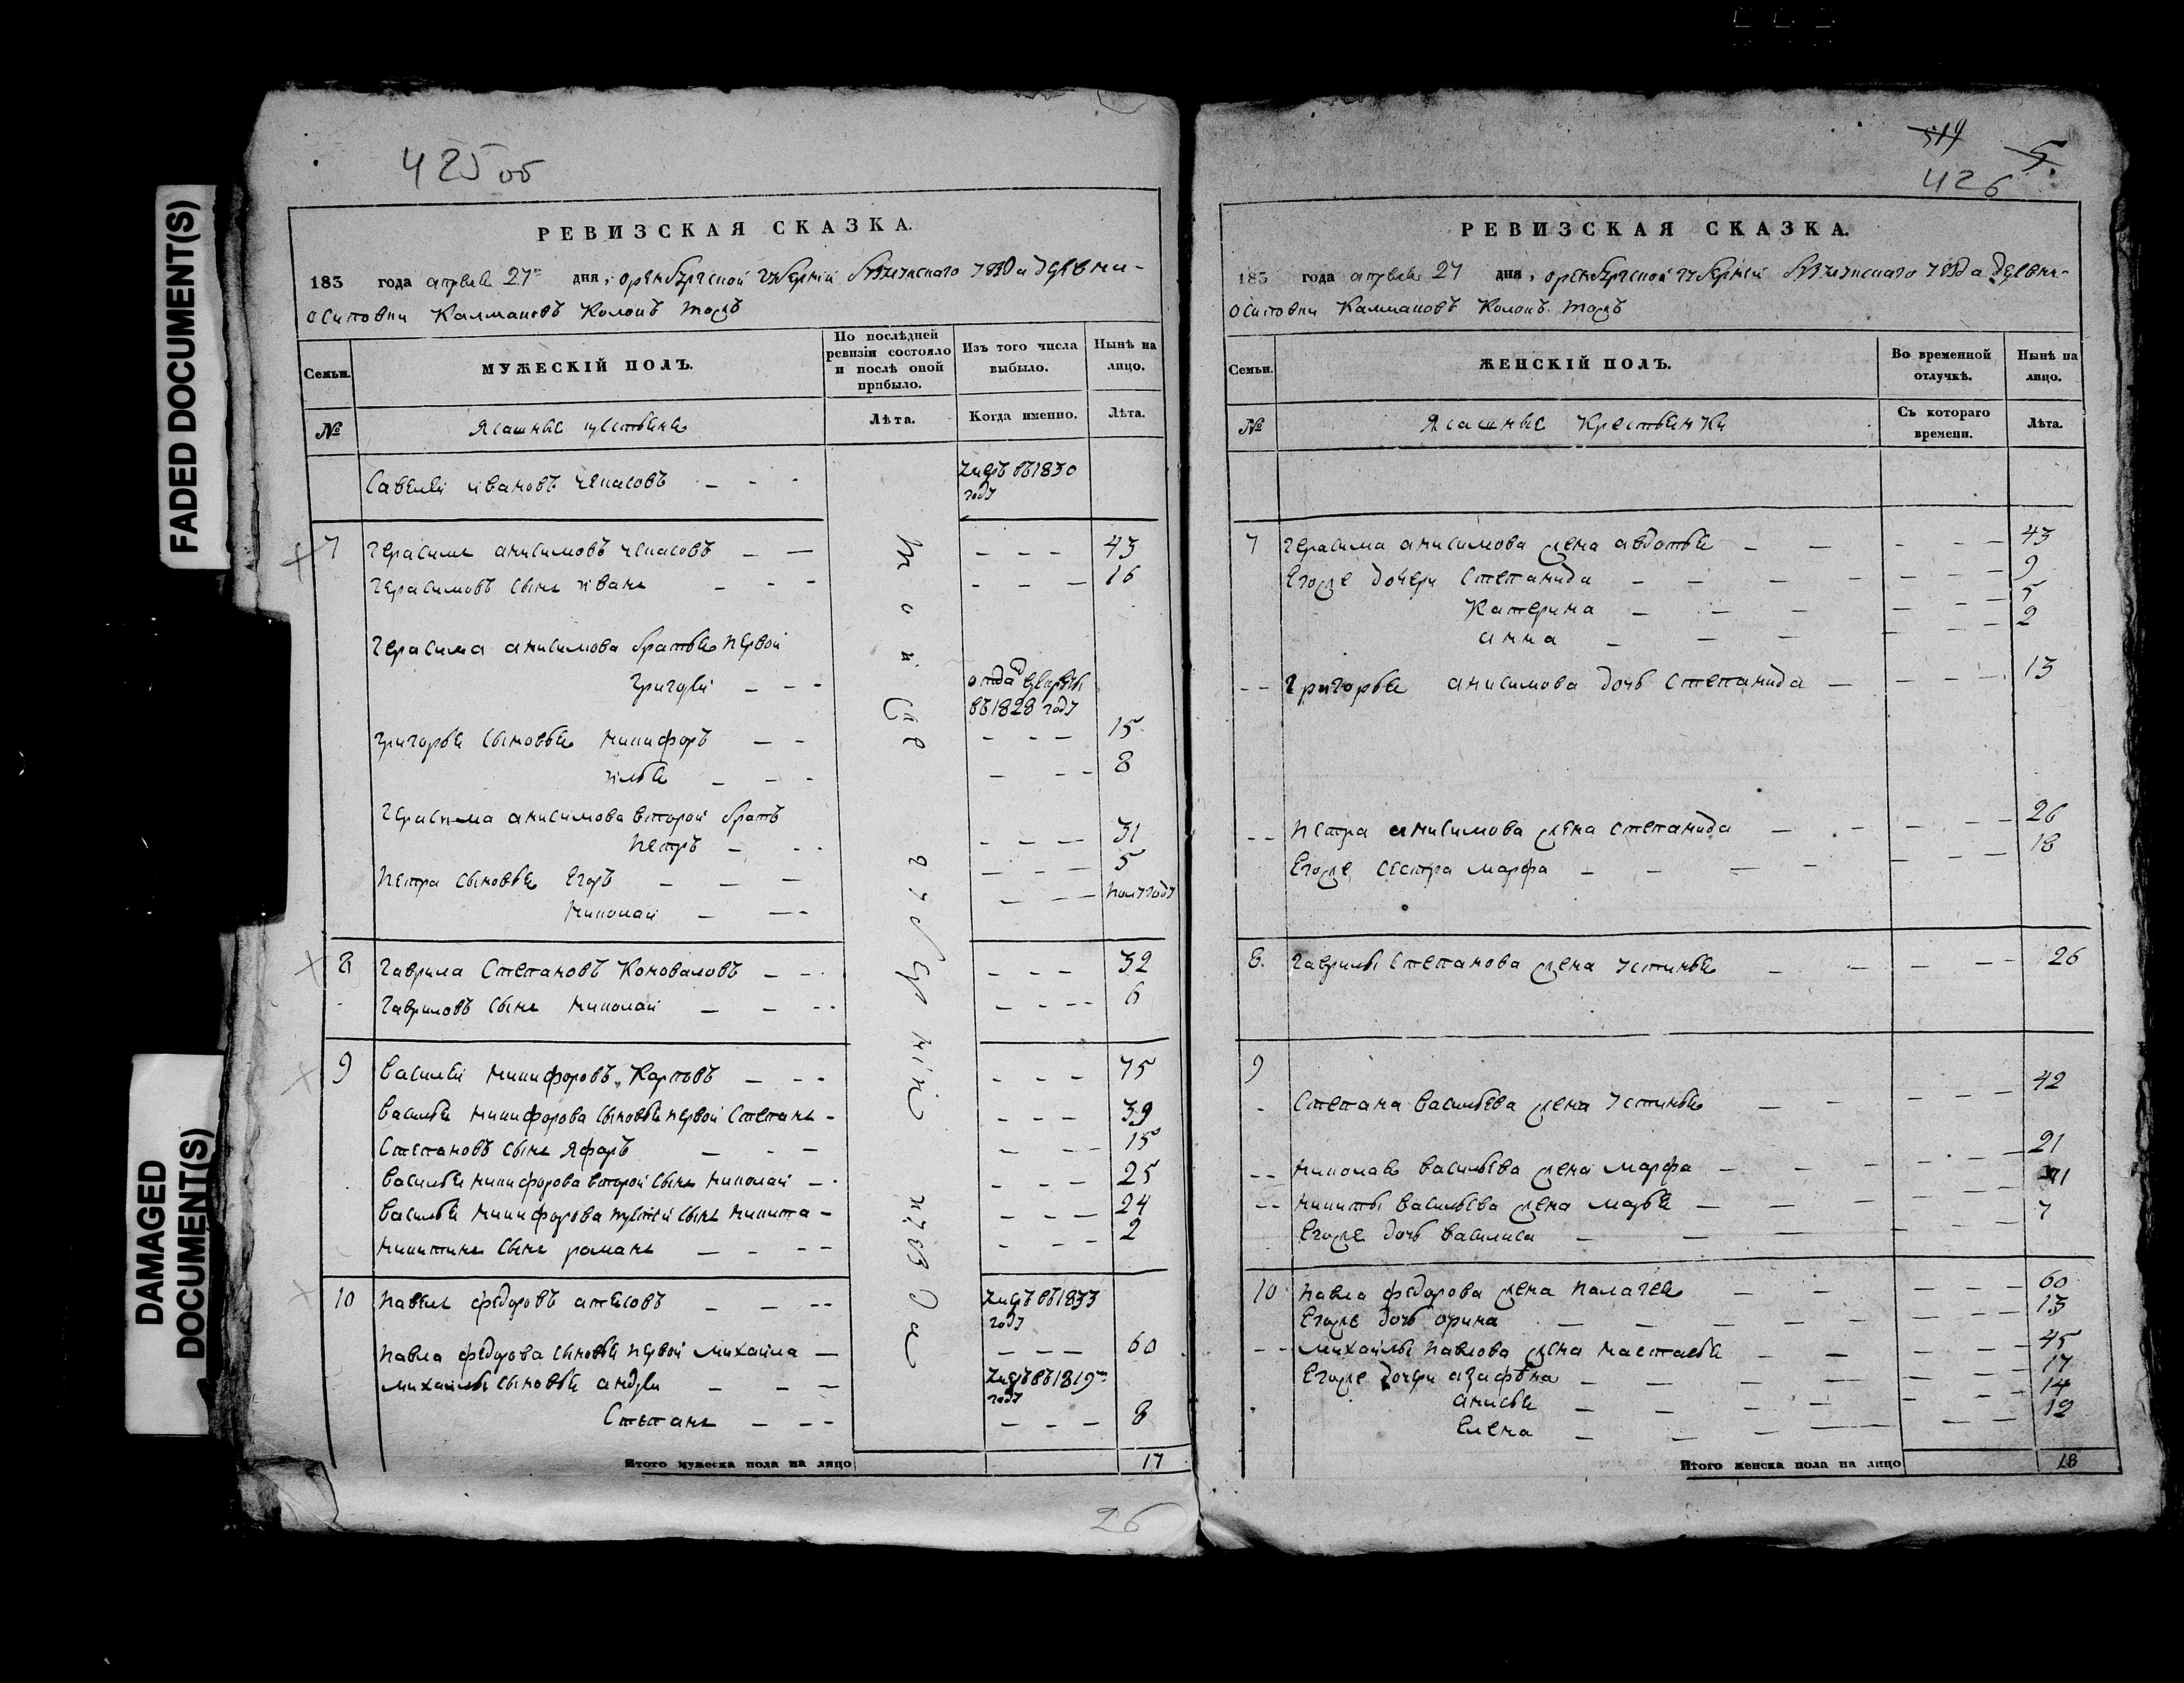 FADED DOCUMENT(S)
DAMAGED
DOCUMENT(S)
425 об
РЕВИЗСКАЯ СКАЗКА.
183 года апреля 27 дня, оренбургской губернии бузулукскаго уезда деревни
осиповки Калмановъ Колокъ тожъ
Семьи.
МУЖЕСКІЙ ПОЛЪ.
По послѣдней ревизіи состояло и послѣ оной прибыло.
Изъ того числа выбыло.
Нынѣ на лицо.
№
Ясашные
Лѣта.
Когда именно.
Лѣта.
Савелей ивановъ чекасовъ - - - въ 1830
году
7 герасимъ анисимовъ чекасовъ - - - - - 43
герасимовъ сынъ иванъ - - - - - - 16
герасима анисимова братья первой
григорей - - -
въ 1828 году
григорья сыновья никифоръ - - - - - 15
илья - - - - - - 8
герасима анисимова второй братъ
петръ - - - - - - 31
петра сыновья егоръ - - - - - - 5
николай - - - - - - полугоду
8 гаврила степановъ Коноваловъ - - - - - - 32
гавриловъ сынъ николай - - - - - - - 6
9 василей никифоровъ Карповъ - - - - - - 75
василья никифорова сыновья первой степанъ - - - - 39
степановъ сынъ - - - - - - 15
василья никифорова второй сынъ николай - - - - - 25
василья никифорова третей сынъ никита - - - - 24
никитинъ сынъ романъ - - - - - - - 2
10 павелъ федоровъ - - - - въ 1833
году
павла федорова сыновья первой михайла - - - - 60
михайлы сыновья андрей - - - въ 1819
году
степанъ - - - - - - 8
Итого мужеска пола на лицо 17
26
519
5.
426
РЕВИЗСКАЯ СКАЗКА.
183 года апреля 27 дня, оренбургской губернии бузулукскаго уезда деревни
осиповки Калмановъ Колокъ тожъ
Семьи.
ЖЕНСКІЙ ПОЛЪ.
Во временной отлучкѣ.
Нынѣ на лицо.
№
Ясашные Крестьянки
Съ котораго времени.
Лѣта.
7 герасима анисимова жена авдотья - - - - - 43
егоже дочери степанида - - - - - - - 9
катерина - - - - - - 5
анна - - - - - - 2
- - григорья анисимова дочь степанида - - - - - 13
- - петра анисимова жена степанида - - - - - 26
егоже сестра марфа - - - - - - - 18
8. гаврилы степанова жена устинья - - - - - 26
9
- степана васильева жена устинья - - - - - 42
- - николая васильева жена марфа - - - - - - 21
- - никиты васильева жена марья - - - - -
егоже дочь василиса - - - - - - 7
10 павла федорова жена палагея - - - - - 60
егоже дочь орина - - - - - - - 13
- - михайлы павлова жена настасья - - - - - 45
егоже дочери агафена - - - - - - - 17
анисья - - - - - - - 14
елена - - - - - - - 12
Итого женска пола на лицо 18